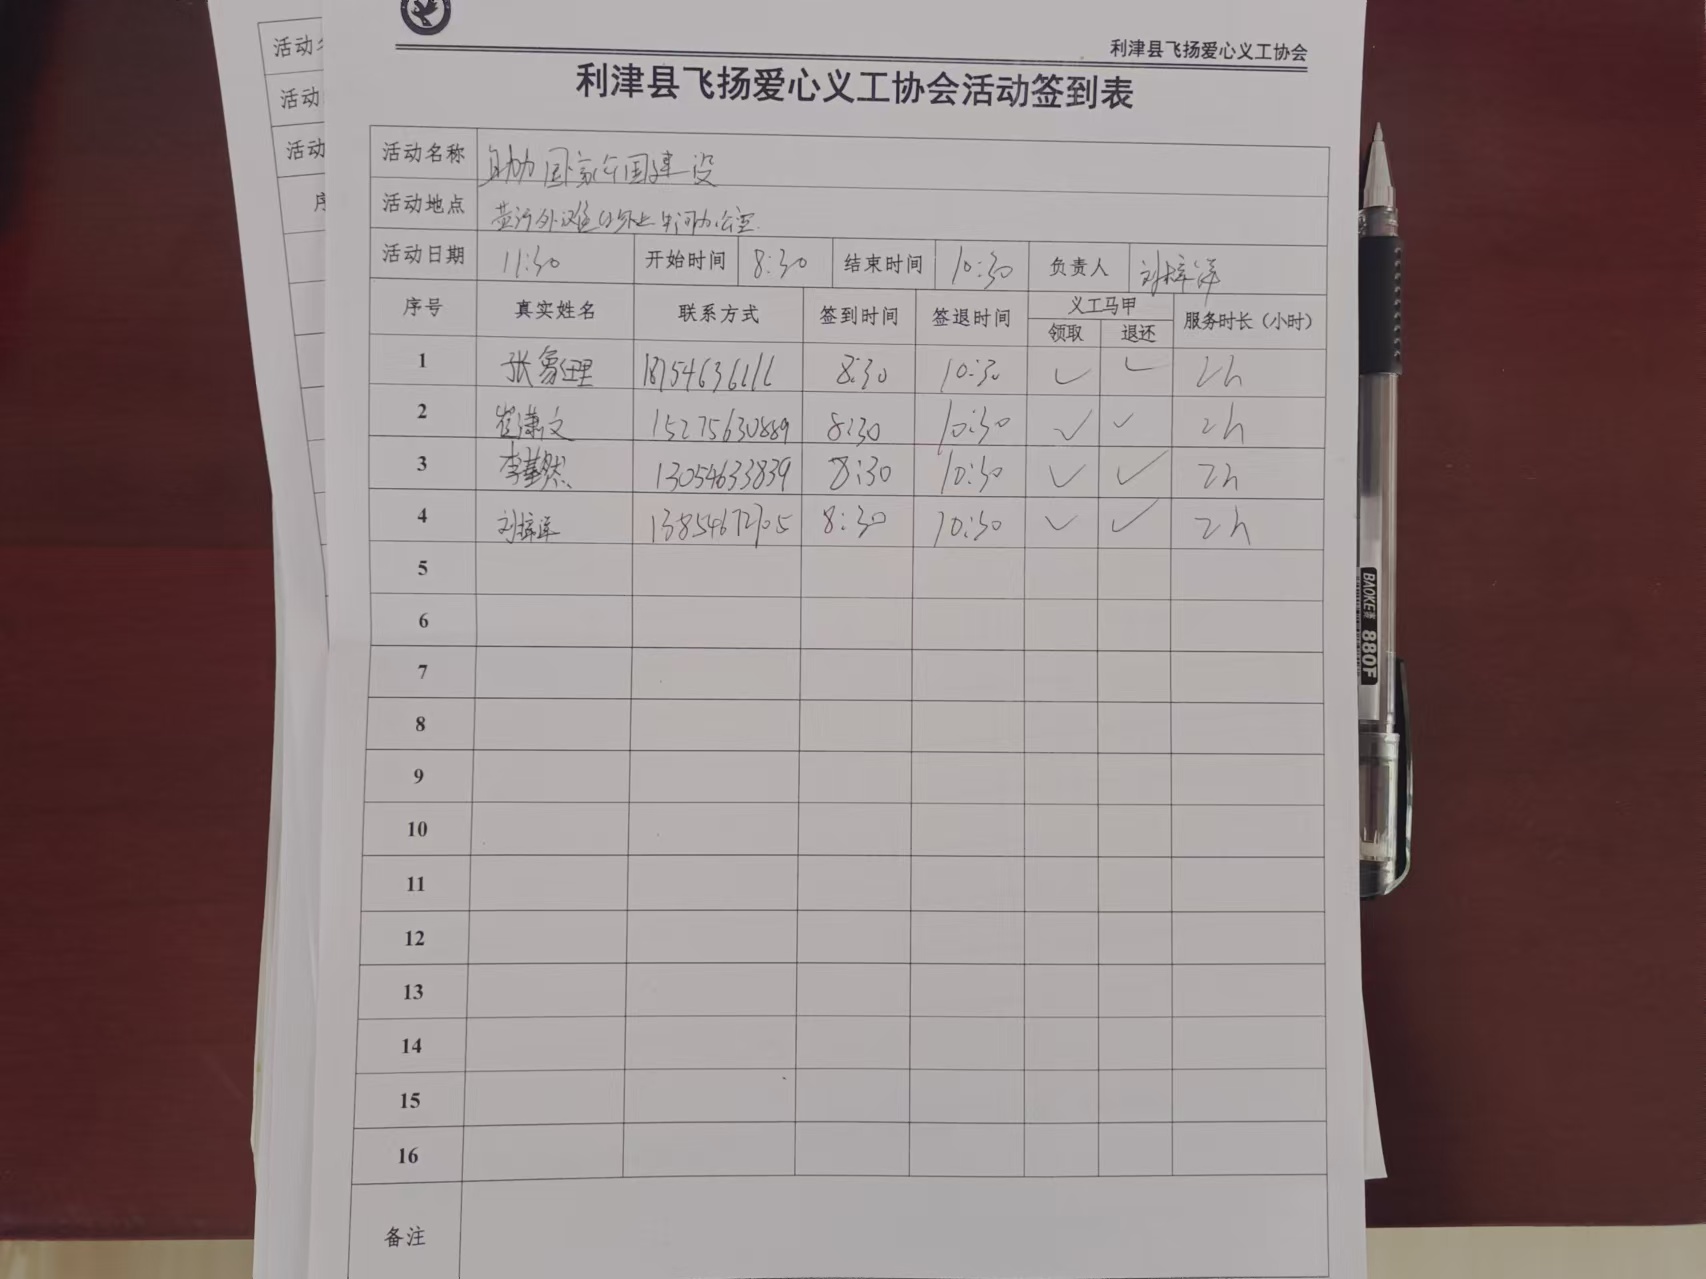 利津县飞扬爱心义工协会
利津县飞扬爱心义工协会活动签到表
活动名称 助力国家公园建设
活动地点 黄河外滩
活动日期 11:30 开始时间 8:30 结束时间 10:30 负责人 刘梓洋
序号 真实姓名 联系方式 签到时间 签退时间 义工马甲 服务时长（小时）
领取 退还
1 张 18754636116 8:30 10:30 ✓ ✓ 2h
2 崔潇文 15275630889 8:30 10:30 ✓ ✓ 2h
3 李 13054633839 8:30 10:30 ✓ ✓ 2h
4 刘梓洋 13854672705 8:30 10:30 ✓ ✓ 2h
5
6
7
8
9
10
11
12
13
14
15
16
备注
活动
活动
活动
BAOKE 880F